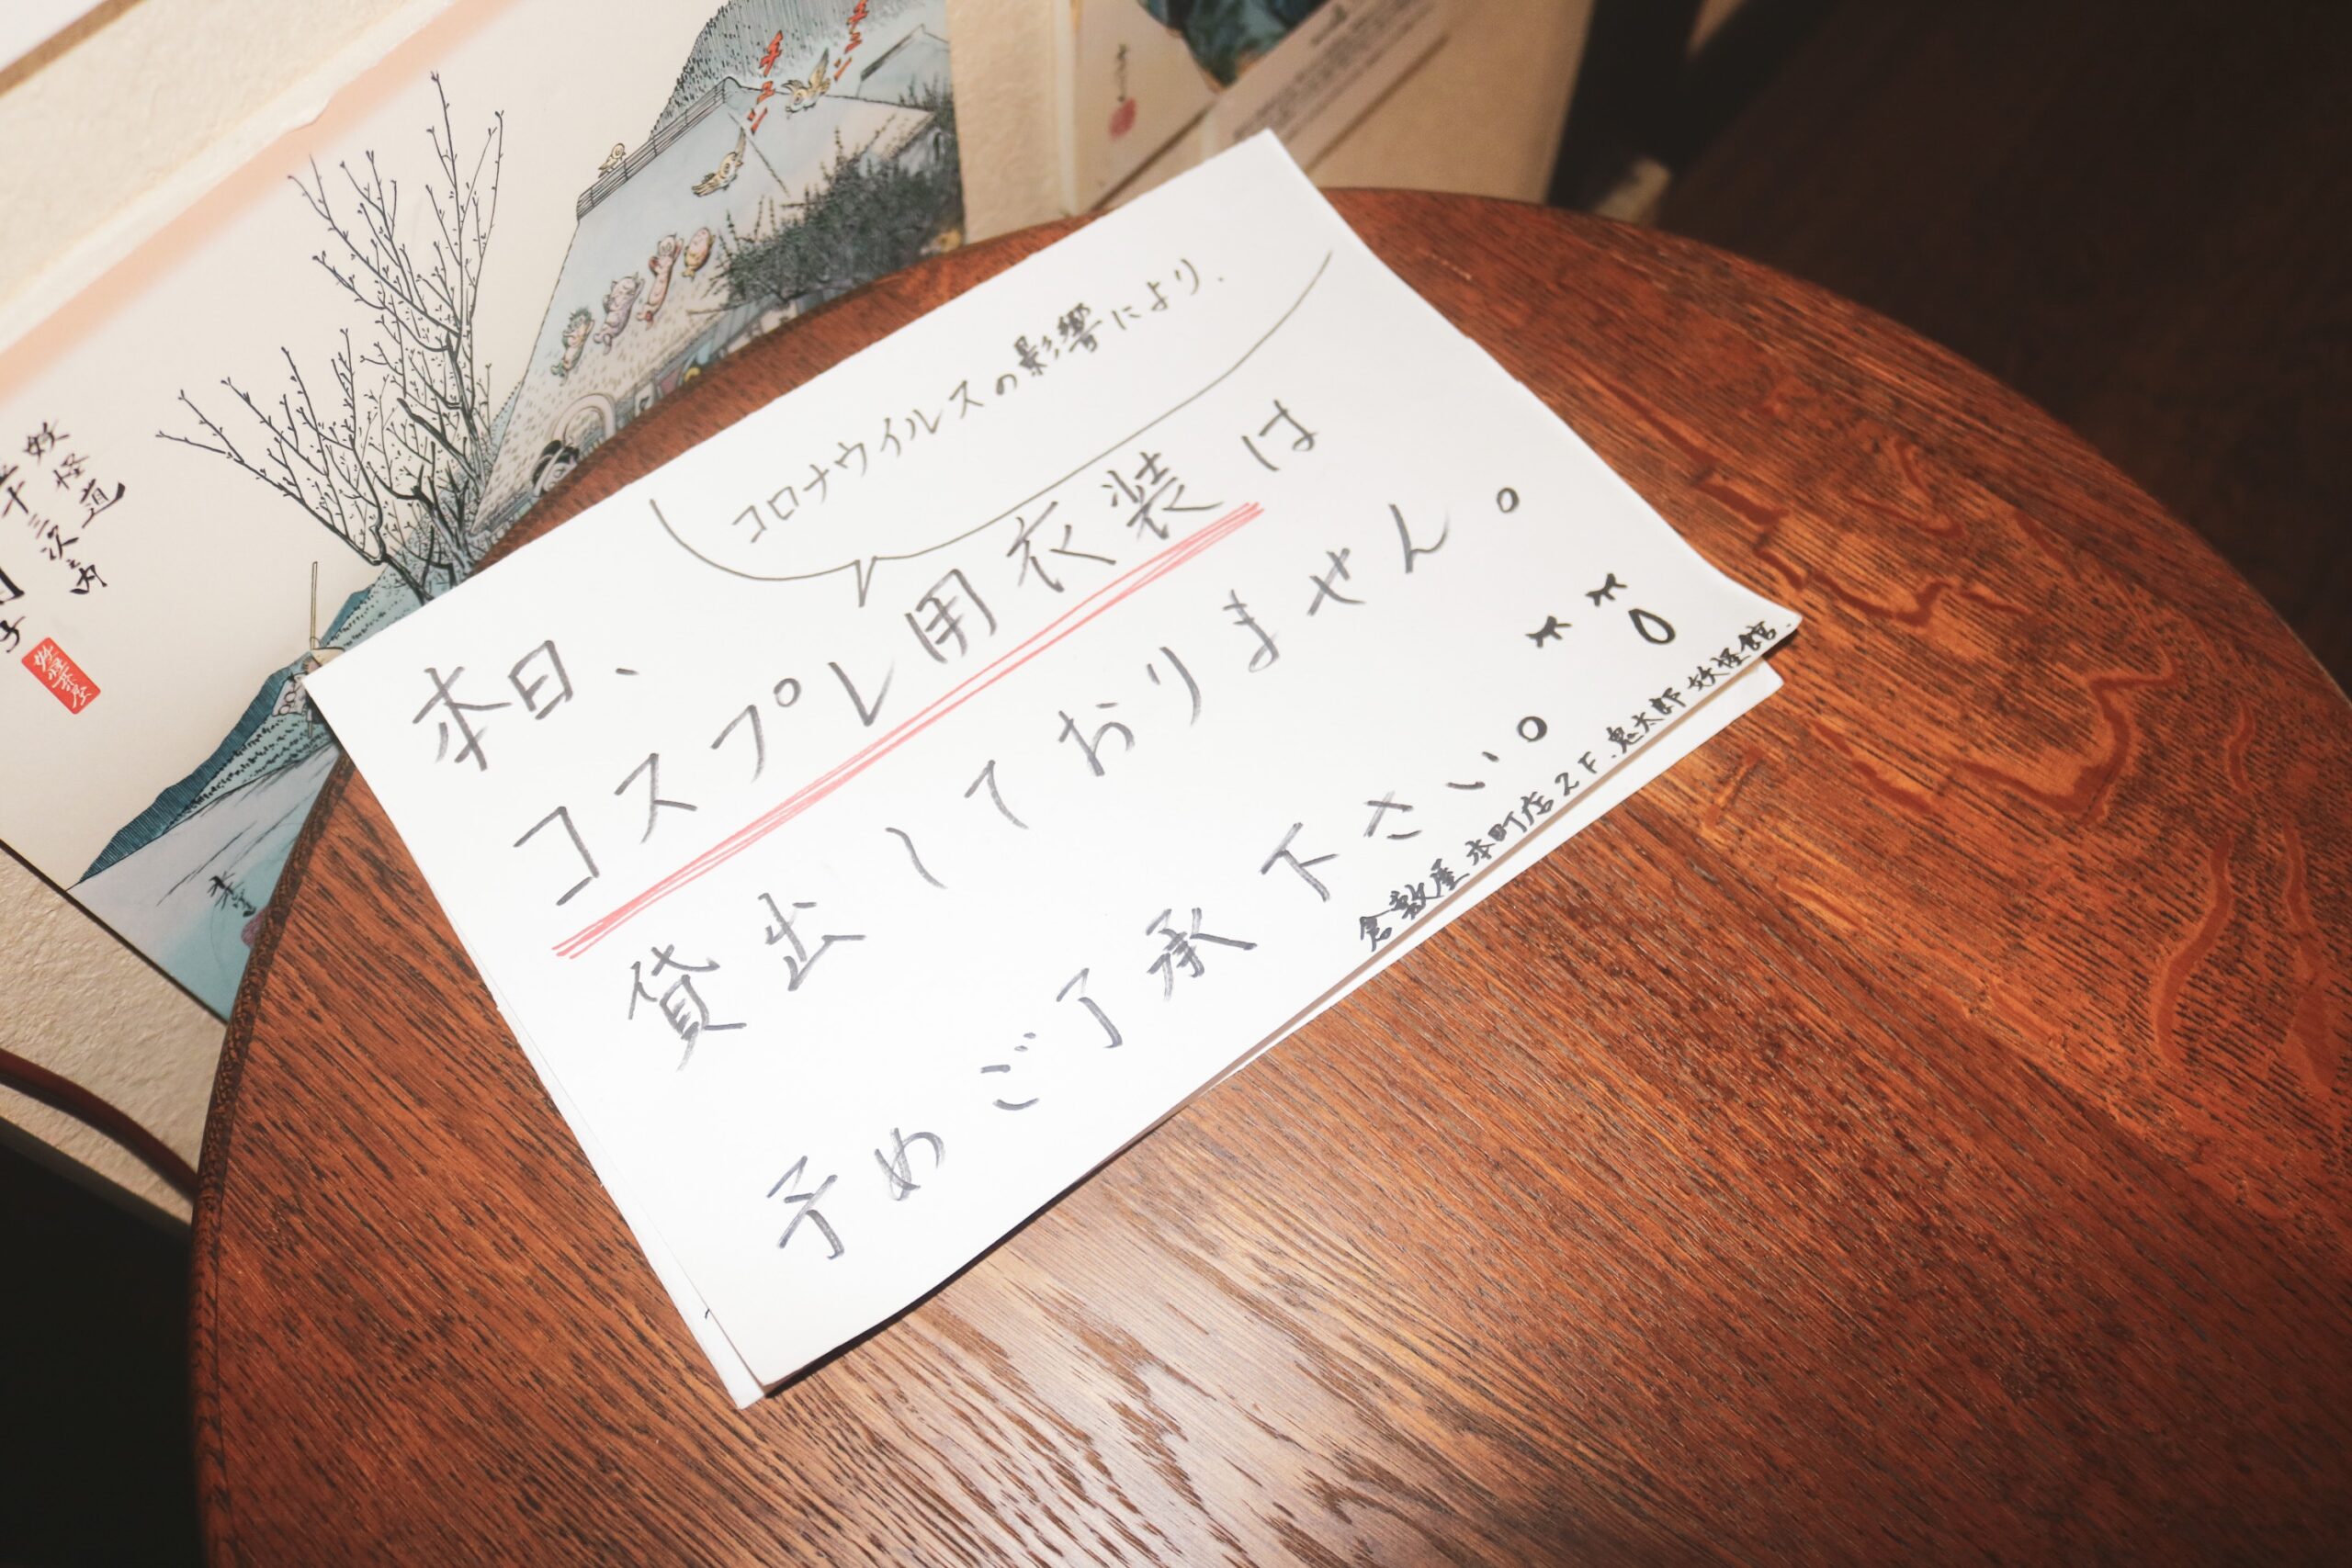 コロナウイルスの影響により.
本日、
コスプレ用衣装は
貸出しておりません。
予めご了承下さい。
倉敷屋 本町店 2F. 鬼太郎妖怪館.
妖怪道
五十三次之内
チュン
チュン